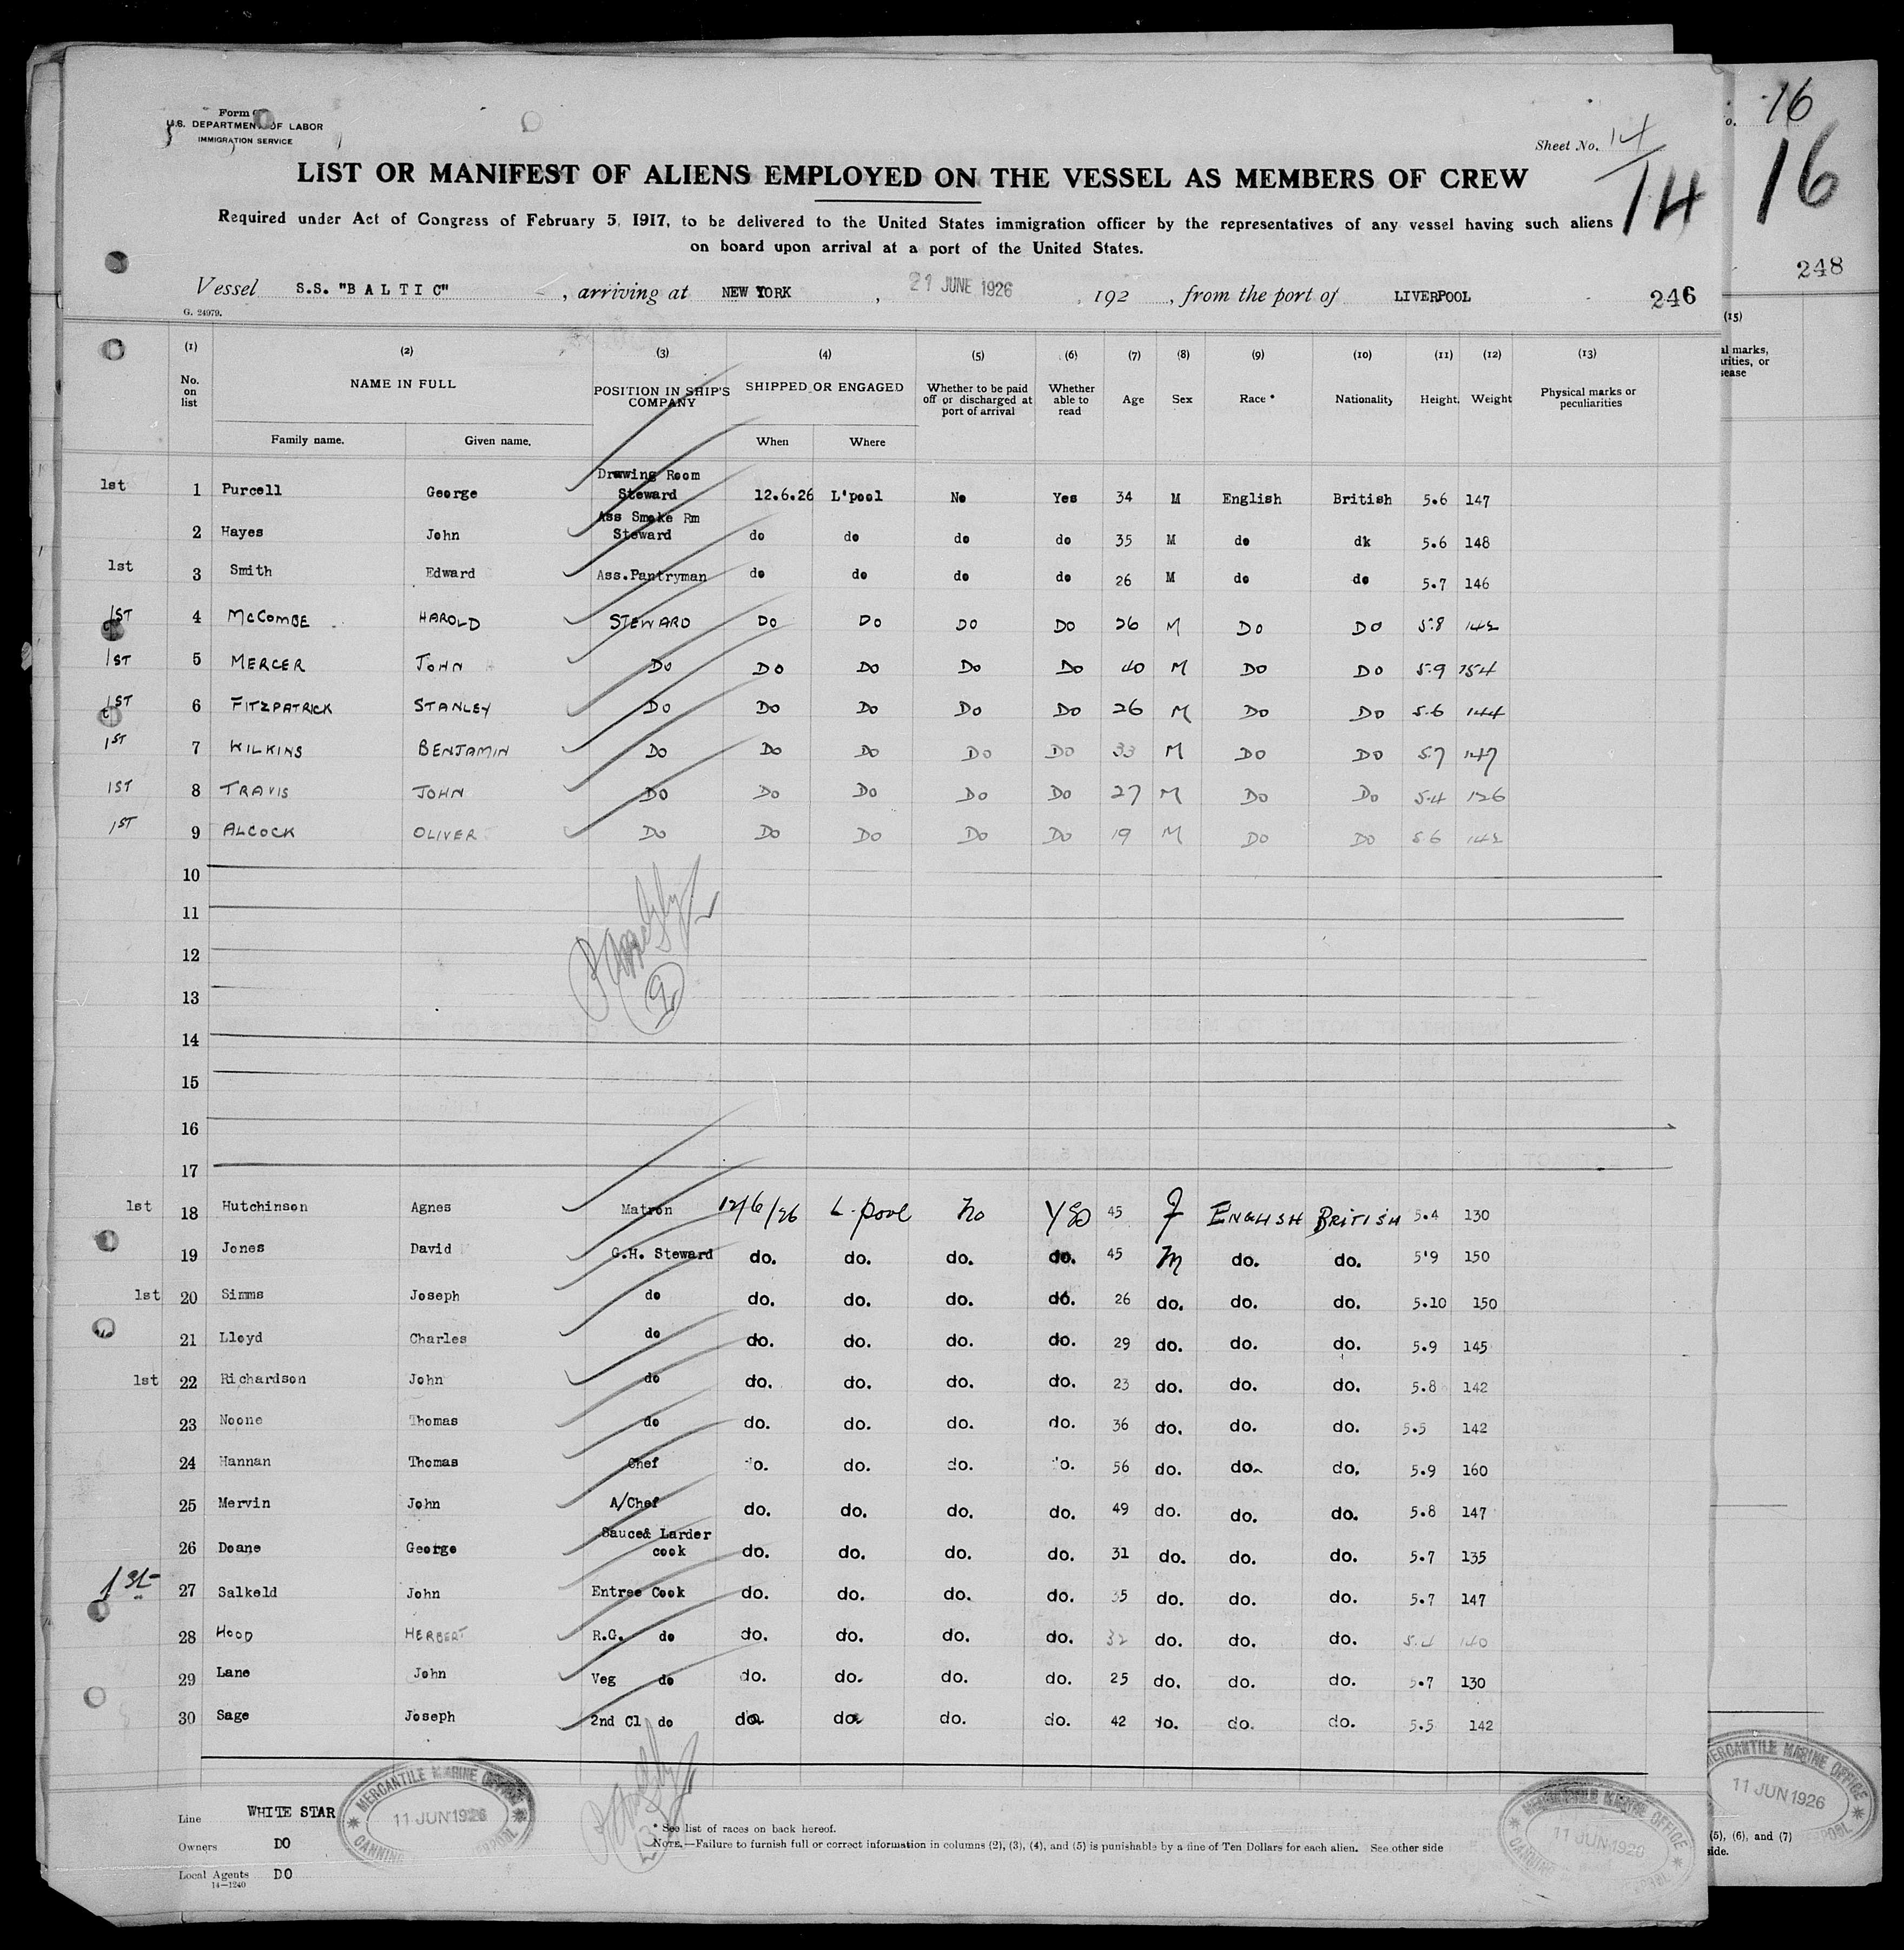 Form
U.S. DEPARTMENT OF LABOR
IMMIGRATION SERVICE
Sheet No. 14
14
LIST OR MANIFEST OF ALIENS EMPLOYED ON THE VESSEL AS MEMBERS OF CREW
Required under Act of Congress of February 5, 1917, to be delivered to the United States immigration officer by the representatives of any vessel having such aliens
on board upon arrival at a port of the United States.
Vessel S.S. "BALTIC" , arriving at NEW YORK , 21 JUNE 1926 , 192 , from the port of LIVERPOOL 246
G. 24979.
(1) (2) (3) (4) (5) (6) (7) (8) (9) (10) (11) (12) (13)
No. on list NAME IN FULL POSITION IN SHIP'S COMPANY SHIPPED OR ENGAGED Whether to be paid off or discharged at port of arrival Whether able to read Age Sex Race * Nationality Height. Weight Physical marks or peculiarities
Family name. Given name. When Where
1st 1 Purcell George Drawing Room Steward 12.6.26 L'pool No Yes 34 M English British 5.6 147
2 Hayes John Ass Smoke Rm Steward do do do do 35 M do dk 5.6 148
1st 3 Smith Edward Ass.Pantryman do do do do 26 M do do 5.7 146
1ST 4 McCOMBE HAROLD STEWARD DO DO DO DO 26 M DO DO 5.8 142
1ST 5 MERCER JOHN DO DO DO DO DO 40 M DO DO 5.9 154
1ST 6 FITZPATRICK STANLEY DO DO DO DO DO 26 M DO DO 5.6 144
1ST 7 WILKINS BENJAMIN DO DO DO DO DO 33 M DO DO 5.7 147
1ST 8 TRAVIS JOHN DO DO DO DO DO 27 M DO DO 5.4 126
1ST 9 ALCOCK OLIVER DO DO DO DO DO 19 M DO DO 5.6 142
10
11
12
13
9
14
15
16
17
1st 18 Hutchinson Agnes Matron 12/6/26 L.pool No YES 45 F ENGLISH BRITISH 5.4 130
19 Jones David G.H. Steward do. do. do. do. 45 M do. do. 5'9 150
1st 20 Simms Joseph do do. do. do. do. 26 do. do. do. 5.10 150
21 Lloyd Charles do do. do. do. do. 29 do. do. do. 5.9 145
1st 22 Richardson John do do. do. do. do. 23 do. do. do. 5.8 142
23 Noone Thomas do do. do. do. do. 36 do. do. do. 5.5 142
24 Hannan Thomas Chef do. do. do. do. 56 do. do. do. 5.9 160
25 Mervin John A/Chef do. do. do. do. 49 do. do. do. 5.8 147
26 Doane George Sauce& Larder cook do. do. do. do. 31 do. do. do. 5.7 135
1st 27 Salkeld John Entree Cook do. do. do. do. 35 do. do. do. 5.7 147
28 HOOD HERBERT R.G. do do. do. do. do. 32 do. do. do. 5.4 140
29 Lane John Veg do do. do. do. do. 25 do. do. do. 5.7 130
30 Sage Joseph 2nd Cl do do. do. do. do. 42 do. do. do. 5.5 142
Line WHITE STAR
Owners DO
Local Agents DO
14—1240
MERCANTILE MARINE OFFICE
11 JUN 1926
* See list of races on back hereof.
NOTE.—Failure to furnish full or correct information in columns (2), (3), (4), and (5) is punishable by a fine of Ten Dollars for each alien. See other side
MERCANTILE MARINE OFFICE
11 JUN 1926
o. 16
16
248
(15)
al marks,
rities, or
sease
MERCANTILE MARINE OFFICE
11 JUN 1926
(5), (6), and (7)
side.